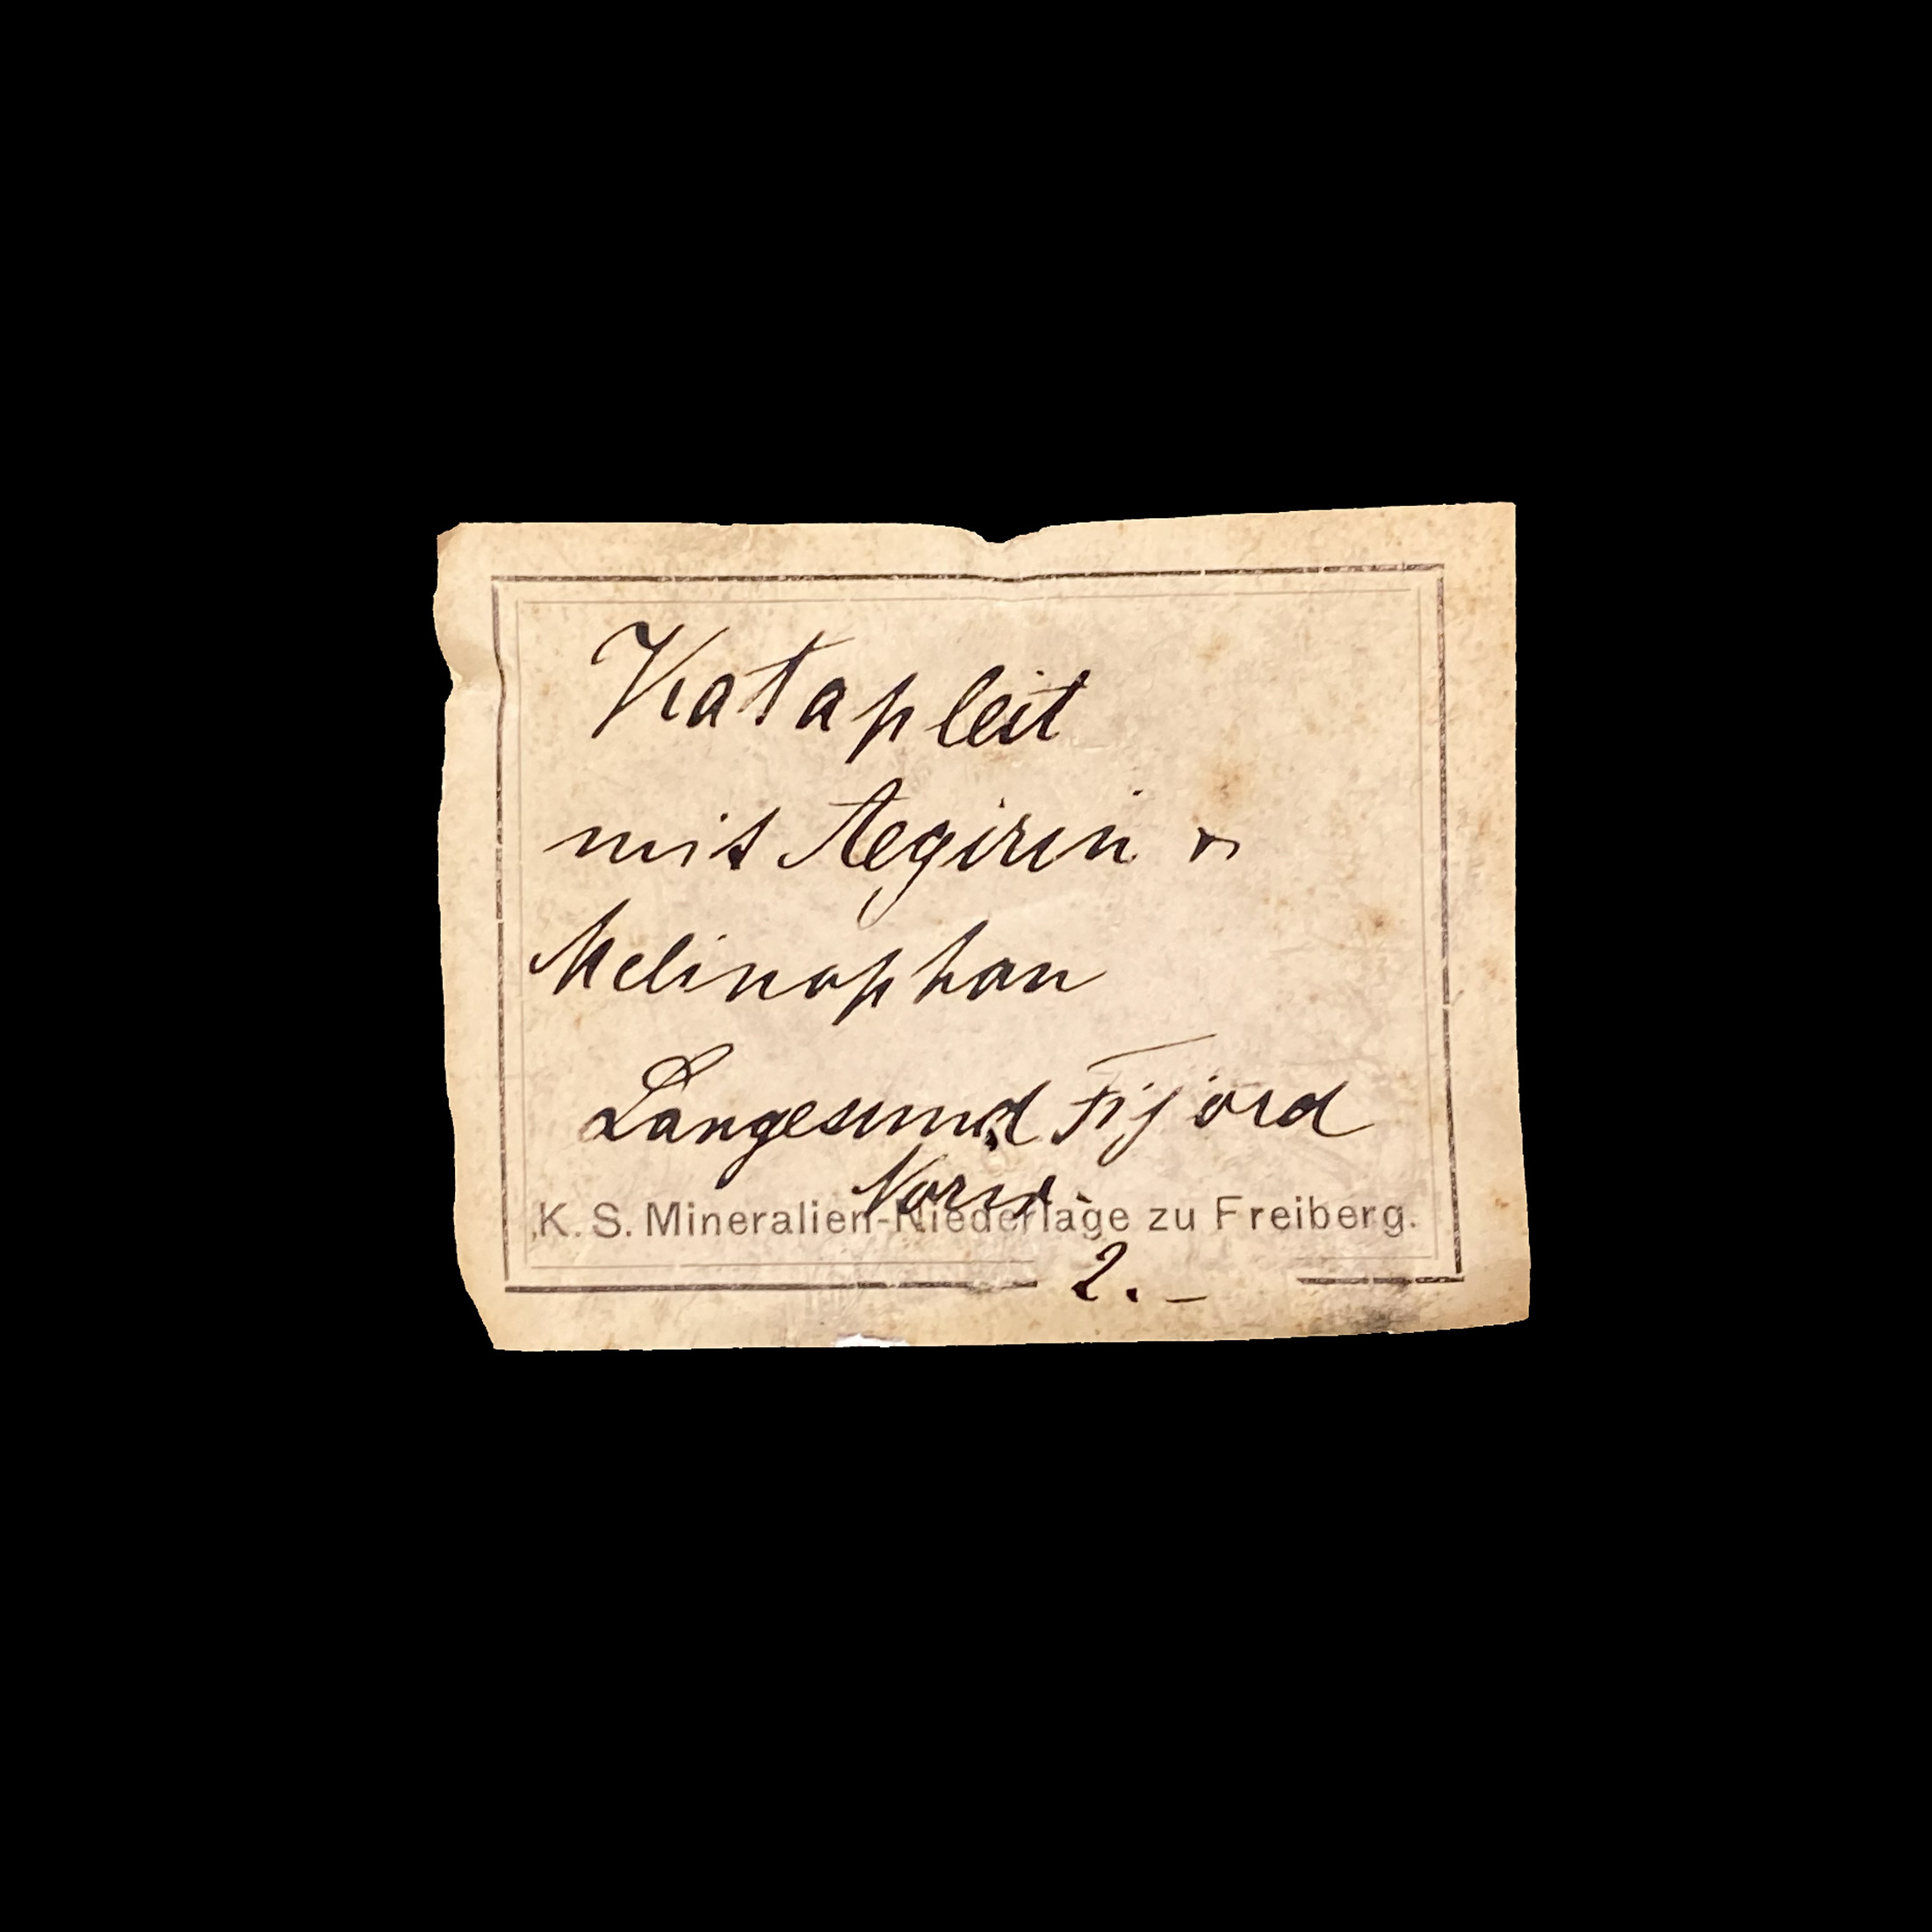 Katapleit
mit Aegirin &
Melinophan
Langesund Fijord
Norw.
K. S. Mineralien-Niederlage zu Freiberg.
2._